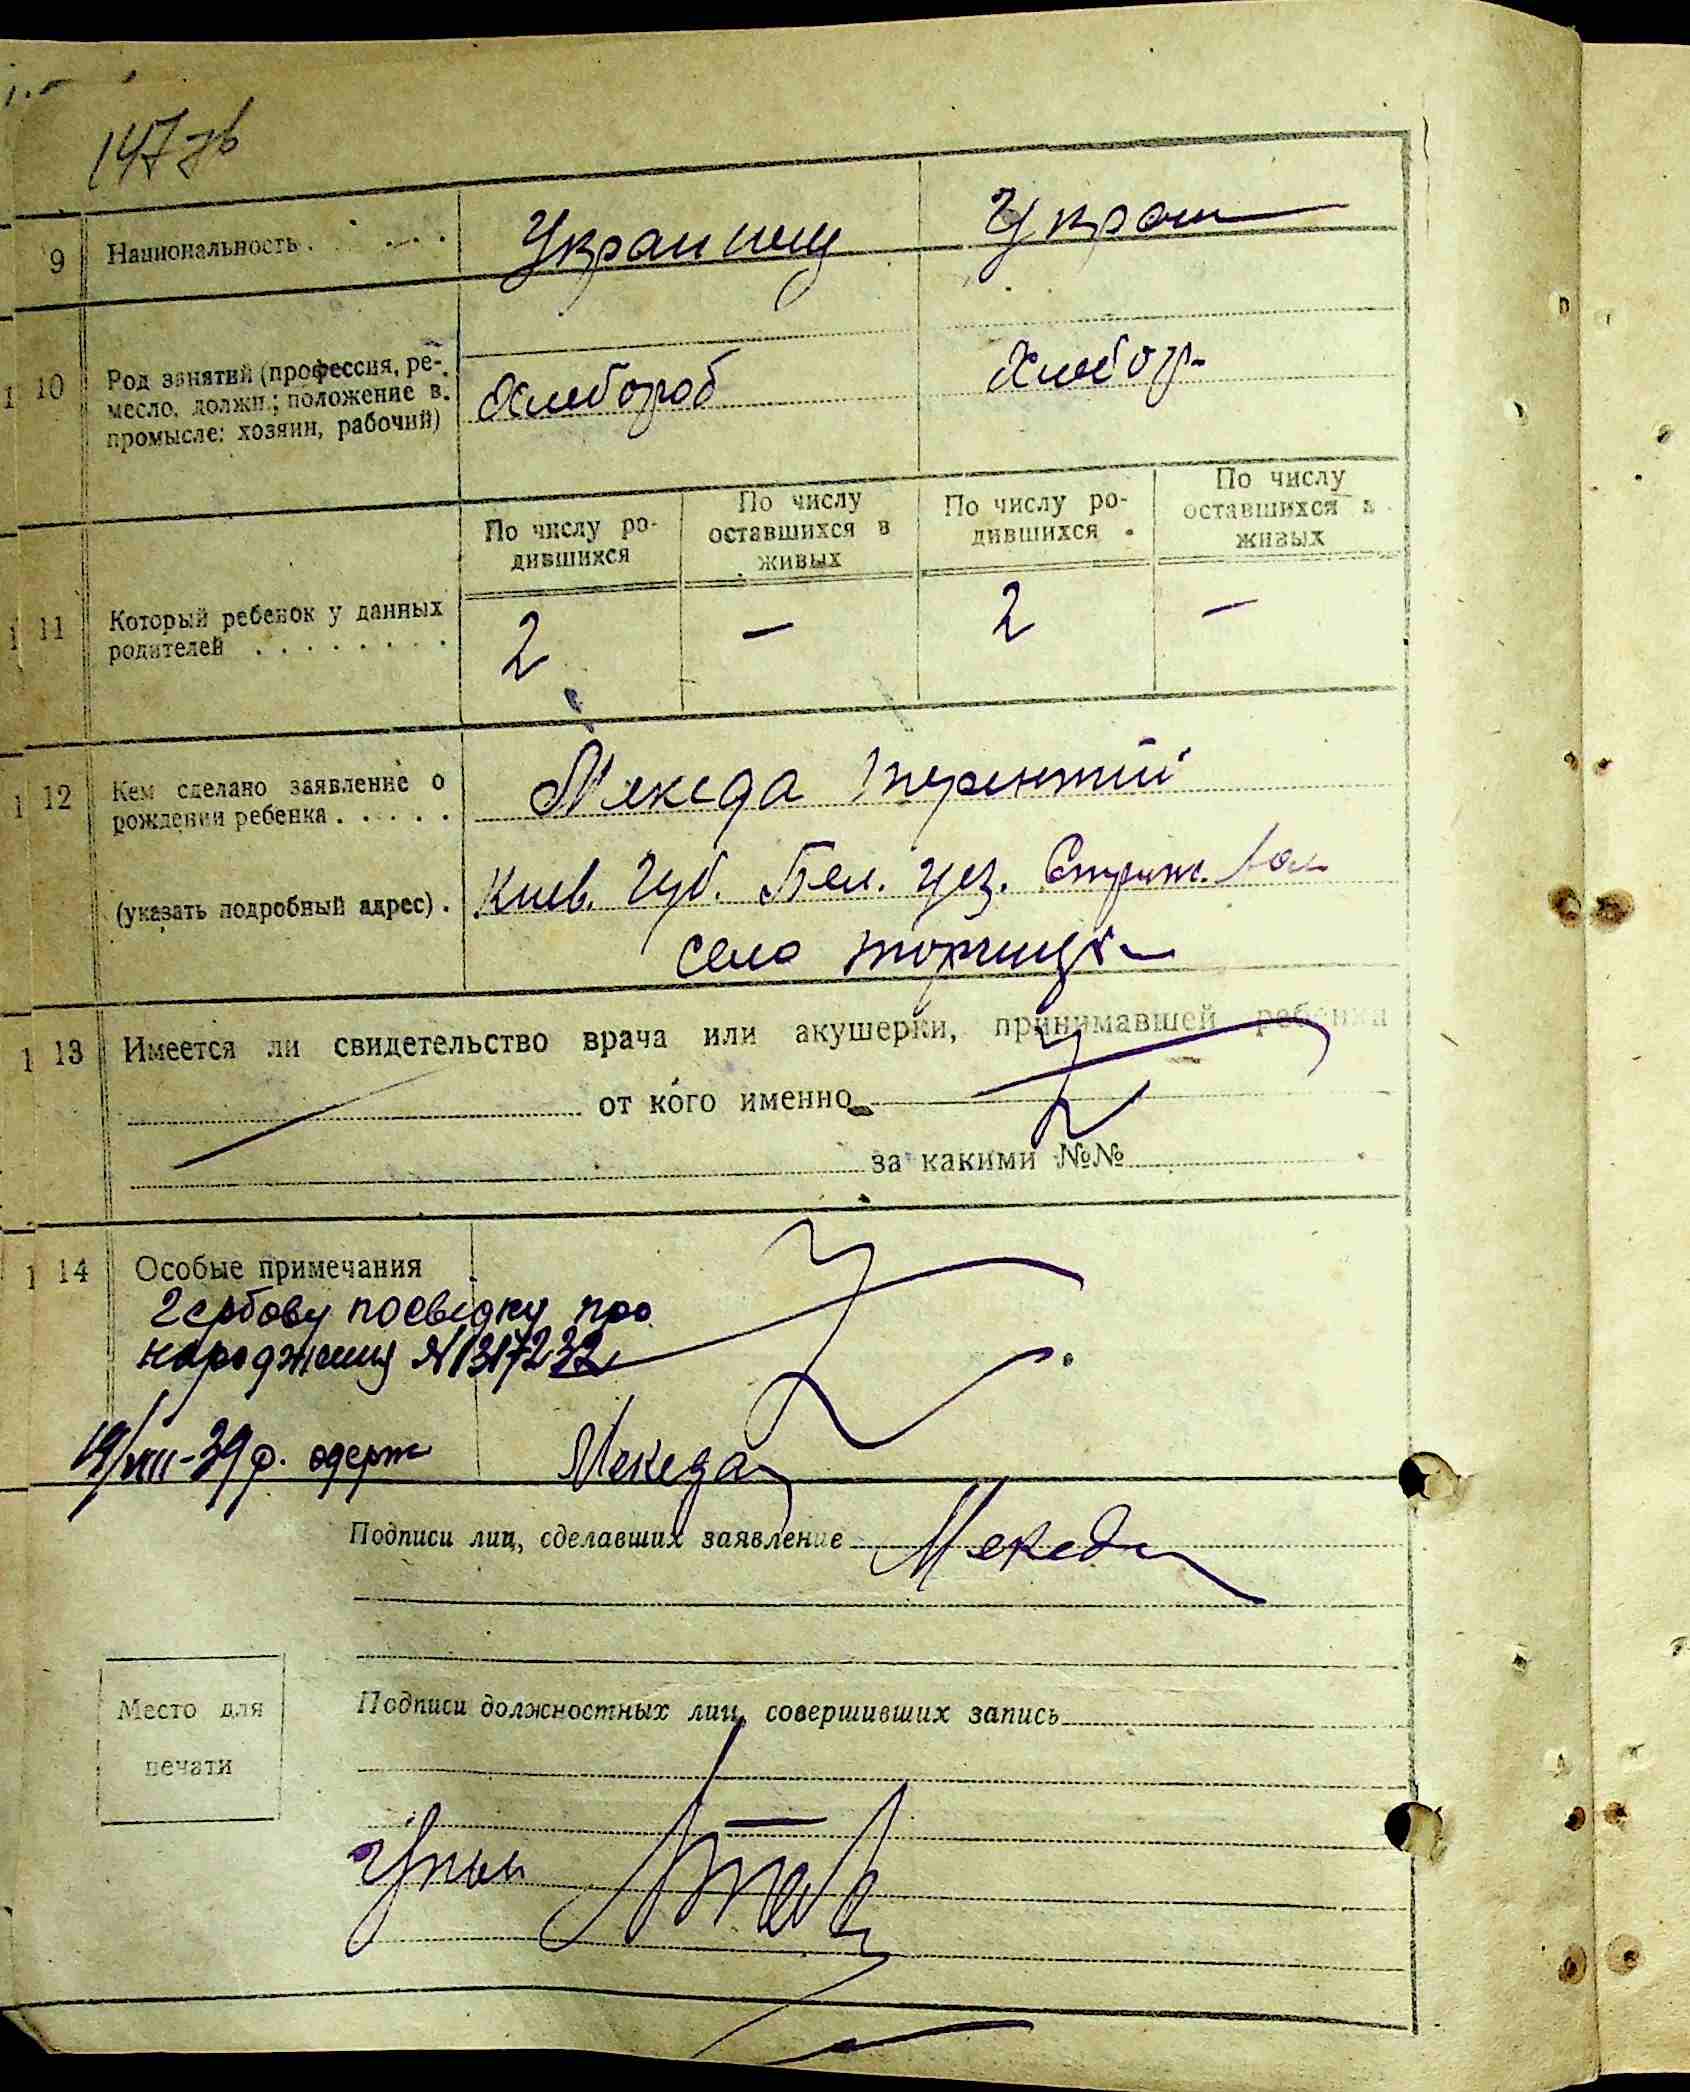 147 зв
9 Национальность . . . . Украинец Украи
10 Род занятий (профессия, ре-
месло, должн.; положение в
промысле: хозяин, рабочий)
Хлебороб Хлебор-
По числу ро-
дившихся
По числу
оставшихся в
живых
По числу ро-
дившихся
По числу
оставшихся в
живых
11 Который ребенок у данных
родителей . . . . . . . .
2 — 2 —
12 Кем сделано заявление о
рождении ребенка . . . . .
Мекеда Терентий
(указать подробный адрес) . Киев. Губ. Бел. уез. Стриж. Вол
село Торчицк
13 Имеется ли свидетельство врача или акушерки, принимавшей ребенка
от кого именно
за какими №№
14 Особые примечания
Гербову посвідку про
народження N 1317232
19/VIII-39 р. одерж Мекеда
Подписи лиц, сделавших заявление Мекеда
Место для
печати
Подписи должностных лиц, совершивших запись